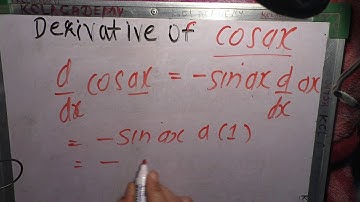 Derivative of cosax
d/dx cosax = -sinax d/dx ax
= -sinax a(1)
= -